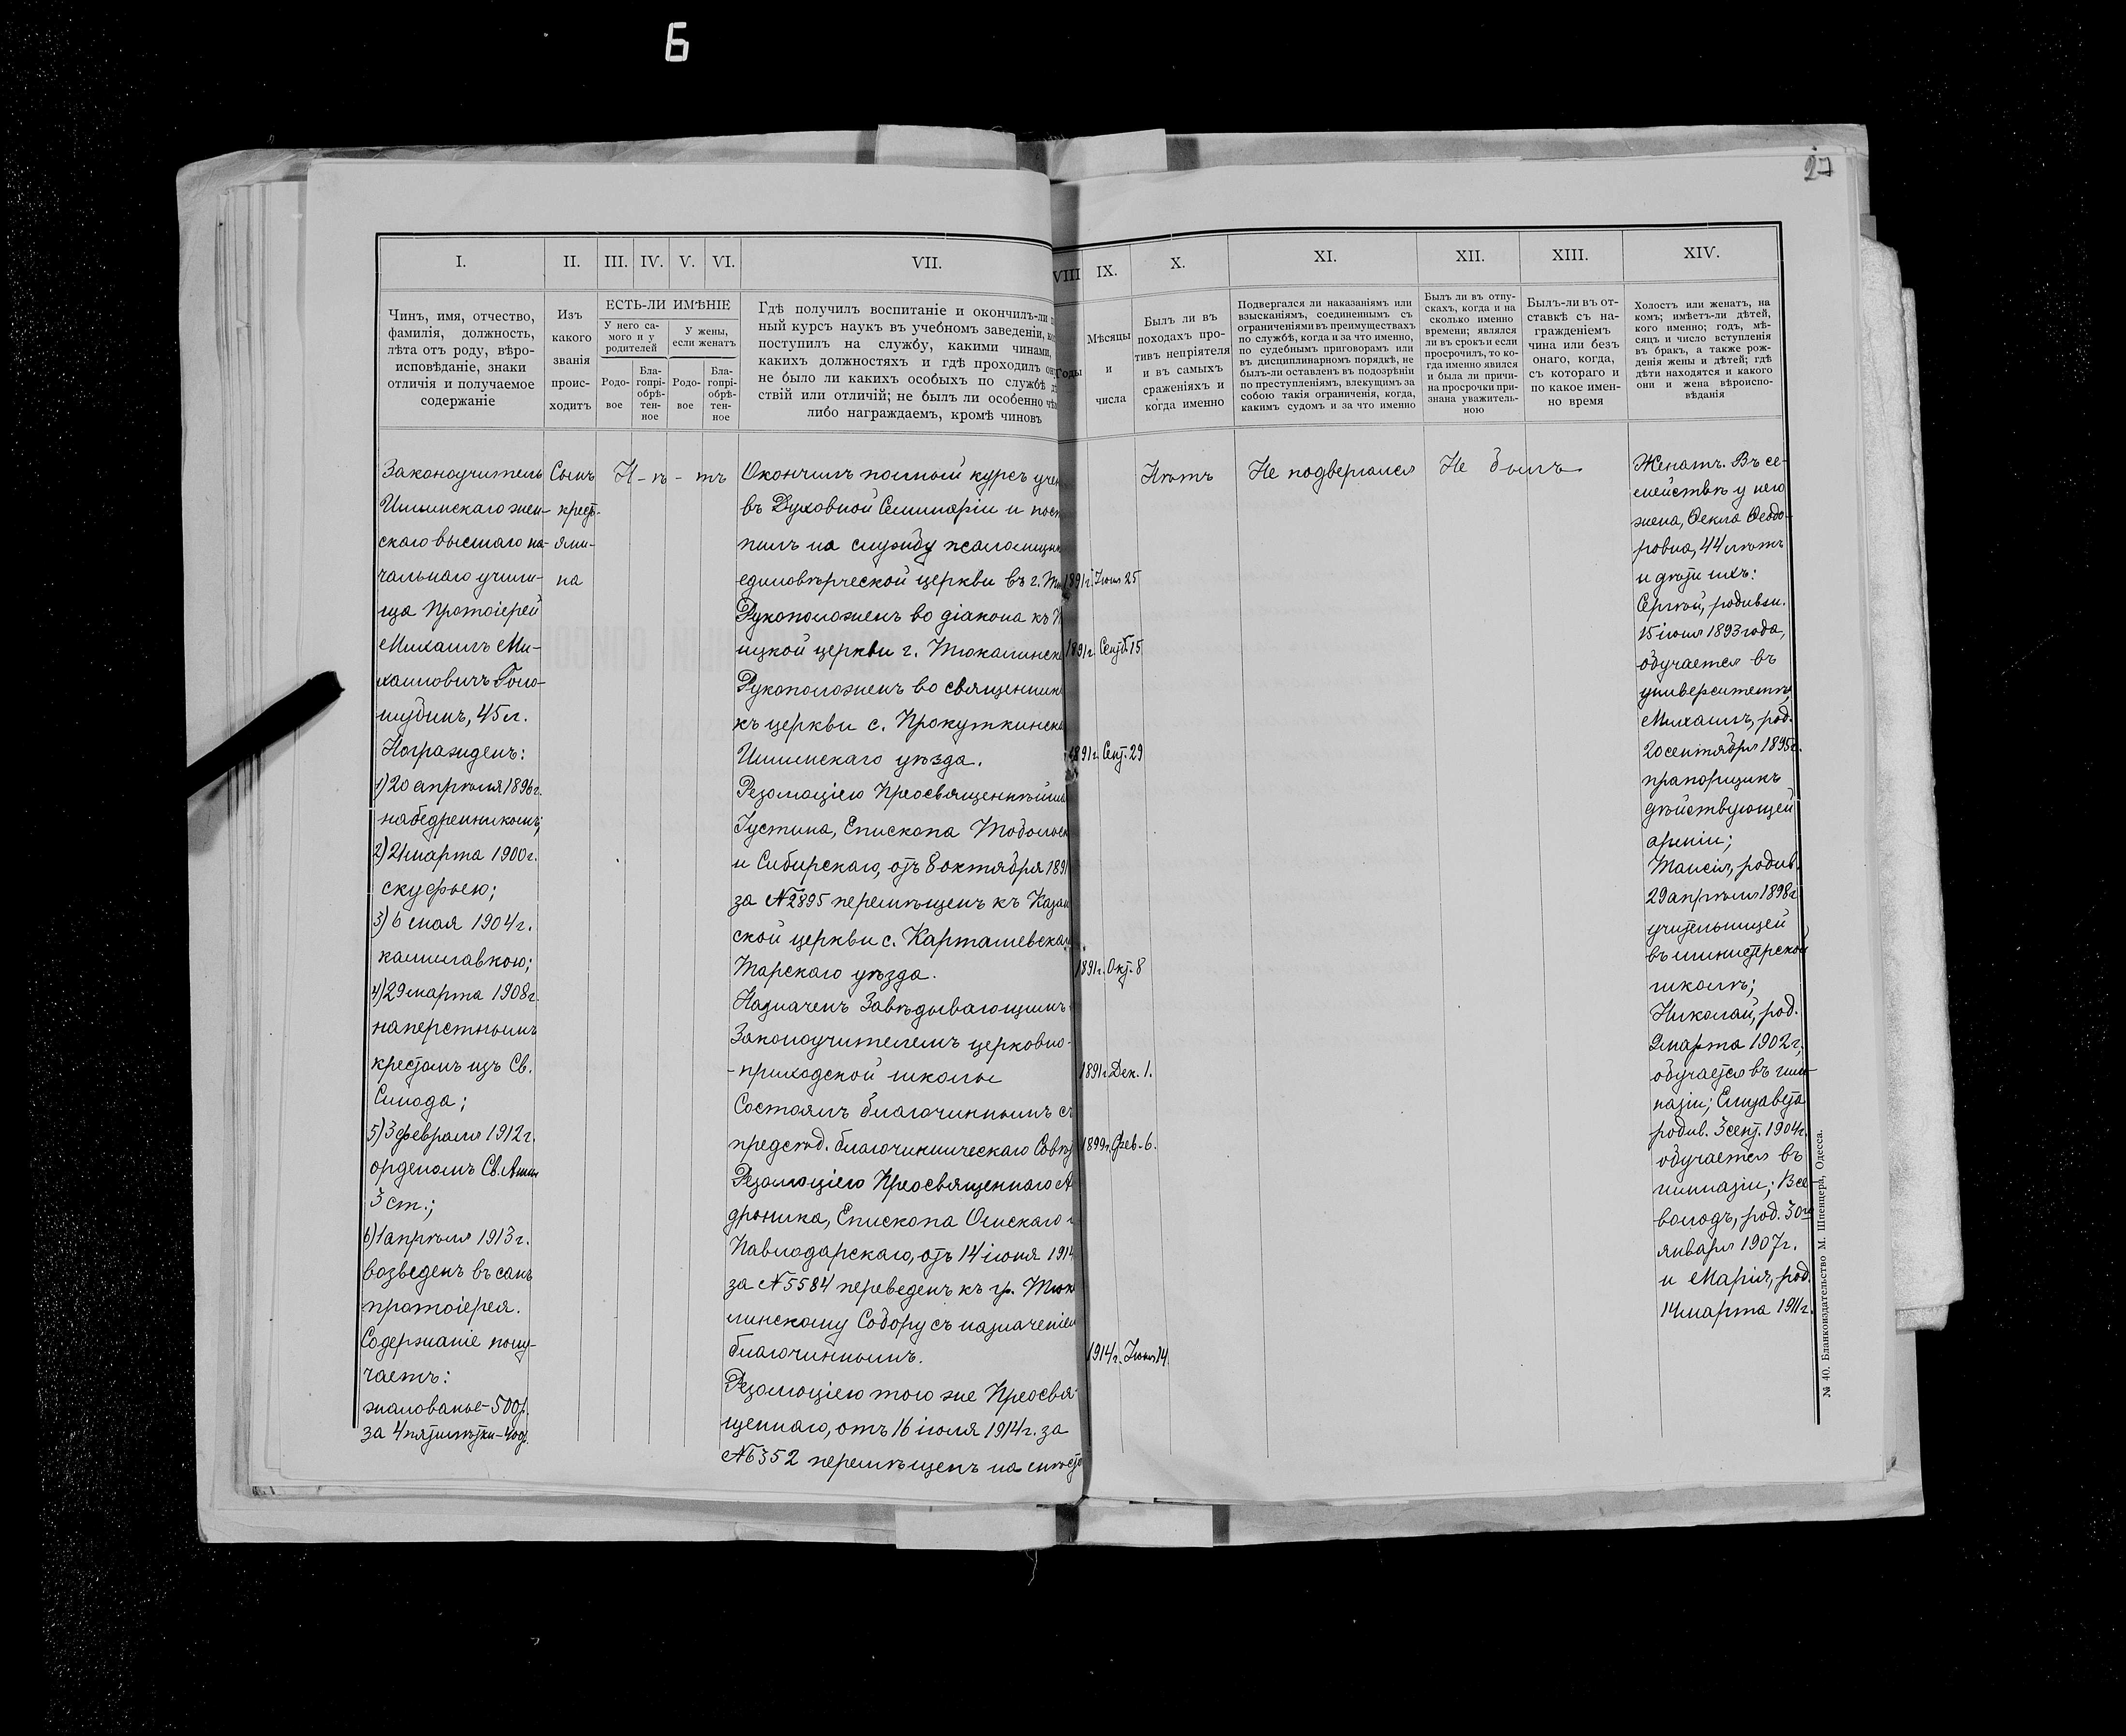 Б
27
I.
II.
III.
IV.
V.
VI.
VII.
VIII
IX.
X.
XI.
XII.
XIII.
XIV.
Чинъ, имя, отчество,
фамилія, должность,
лѣта отъ роду, вѣро-
исповѣданіе, знаки
отличія и получаемое
содержаніе
Изъ
какого
званія
проис-
ходитъ
ЕСТЬ-ЛИ ИМѢНІЕ
У него са-
мого и у
родителей
У жены,
если женатъ
Родо-
вое
Бла-
гопрі-
обрѣ-
тен-
ное
Родо-
вое
Бла-
гопрі-
обрѣ-
тен-
ное
Гдѣ получилъ воспитаніе и окончилъ-ли
ный курсъ наукъ въ учебномъ заведеніи,
поступилъ на службу, какими чинами,
какихъ должностяхъ и гдѣ проходилъ
не было ли какихъ особыхъ по службѣ
ствій или отличій; не былъ ли особенно
либо награждаемъ, кромѣ чиновъ
Годы
Мѣсяцы
и
числа
Былъ ли въ
походахъ про-
тивъ непріятеля
и въ самыхъ
сраженіяхъ и
когда именно
Подвергался ли наказаніямъ или
взысканіямъ, соединеннымъ съ
ограниченіями въ преимуществахъ
по службѣ, когда и за что именно,
по судебнымъ приговорамъ или
въ дисциплинарномъ порядкѣ, не
былъ-ли оставленъ въ подозрѣніи
по преступленіямъ, влекущимъ за
собою такія ограниченія, когда,
какимъ судомъ и за что именно
Былъ ли въ отпу-
скахъ, когда и на
сколько именно
времени; являлся
ли въ срокъ и если
просрочилъ, то ко-
гда именно явился
и была ли причи-
на просрочки при-
знана уважитель-
ною
Былъ-ли въ от-
ставкѣ съ на-
гражденіемъ
чина или безъ
онаго, когда,
съ котораго и
по какое имен-
но время
Холостъ или женатъ, на
комъ; имѣетъ-ли дѣтей,
кого именно; годъ, мѣ-
сяцъ и число вступленія
въ бракъ, а также рож-
денія жены и дѣтей; гдѣ
дѣти находятся и какого
они и жена вѣроиспо-
вѣданія
Законоучитель
Ишимскаго жен-
скаго высшаго на-
чальнаго учили-
ща Протоіерей
Михаилъ Ми-
хаиловичъ Голо-
шубинъ, 45 л.
Награжденъ:
1) 20 апрѣля 1896 г.
набедренникомъ;
2) 21 марта 1900 г.
скуфьею;
3) 6 мая 1904 г.
камилавкою;
4) 29 марта 1908 г.
наперстнымъ
крестомъ изъ Св.
Синода;
5) 3 февраля 1912 г.
орденомъ Св. Анны
3 ст.;
6) 1 апрѣля 1913 г.
возведенъ въ санъ
протоіерея.
Содержаніе полу-
чаетъ:
жалованье - 500 р.
за 4 пятилѣтки - 400 р.
Сынъ
крест-
яни-
на
Н - ѣ - тъ
Окончилъ полный курсъ учен
въ Духовной Семинаріи и пост
пилъ на службу псаломщик
единовѣрческой церкви въ г. Тю
Рукоположенъ во діакона къ
ицкой церкви г. Тюкалинска
Рукоположенъ во священник
къ церкви с. Прокуткинска
Ишимскаго уѣзда.
Резолюціею Преосвященнѣйша
Іустина, Епископа Тобольск
и Сибирскаго, отъ 8 октября 1891
за № 2895 перемѣщенъ къ Казан
ской церкви с. Карташевска
Тарскаго уѣзда.
Назначенъ Завѣдывающимъ
Законоучителемъ церковно-
-приходской школы
Состоялъ благочиннымъ съ
предсѣд. благочинническаго Совѣт
Резолюціею Преосвященнаго Ан
дроника, Епископа Омскаго и
Павлодарскаго, отъ 14 іюня 1914
за № 5584 переведенъ къ гр. Тюка
линскому Собору съ назначеніем
благочиннымъ.
Резолюціею того же Преосвя-
щеннаго, отъ 16 іюля 1914 г. за
№ 6352 перемѣщенъ на мѣсто
1891 г. Іюля 25
1891 г. Сент. 15
1891 г. Сент. 29
1891 г. Окт. 8
1891 г. Дек. 1.
1899 г. Фев. 6.
1914 г. Іюня 14.
Нѣтъ
Не подвергался
Не былъ
Женатъ. Въ се-
мействѣ у него
жена, Ѳекла Ѳеодо-
ровна, 44 лѣтъ
и дѣти ихъ:
Сергѣй, родивш.
15 іюля 1893 года,
обучается въ
университетѣ,
Михаилъ, род.
20 сентября 1895 г.
прапорщикъ
дѣйствующей
арміи;
Таисія, родив.
29 апрѣля 1898 г.
учительницей
въ министерской
школѣ;
Николай, род.
2 марта 1902 г.,
обучается въ гим-
назіи; Елизавета
родив. 3 сент. 1904 г.
обучается въ
гимназіи; Все-
володъ, род. 30го
января 1907 г.
и Марія, род.
14 марта 1911 г.
№ 40. Бланкоиздательство М. Шпенцера, Одесса.